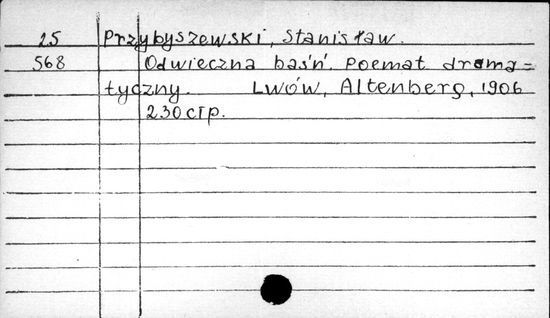 25 Przybyszewski, Stanisław.
568 Odwieczna baśń. Poemat drama=
tyczny. Lwów, Altenberg, 1906
230 стр.